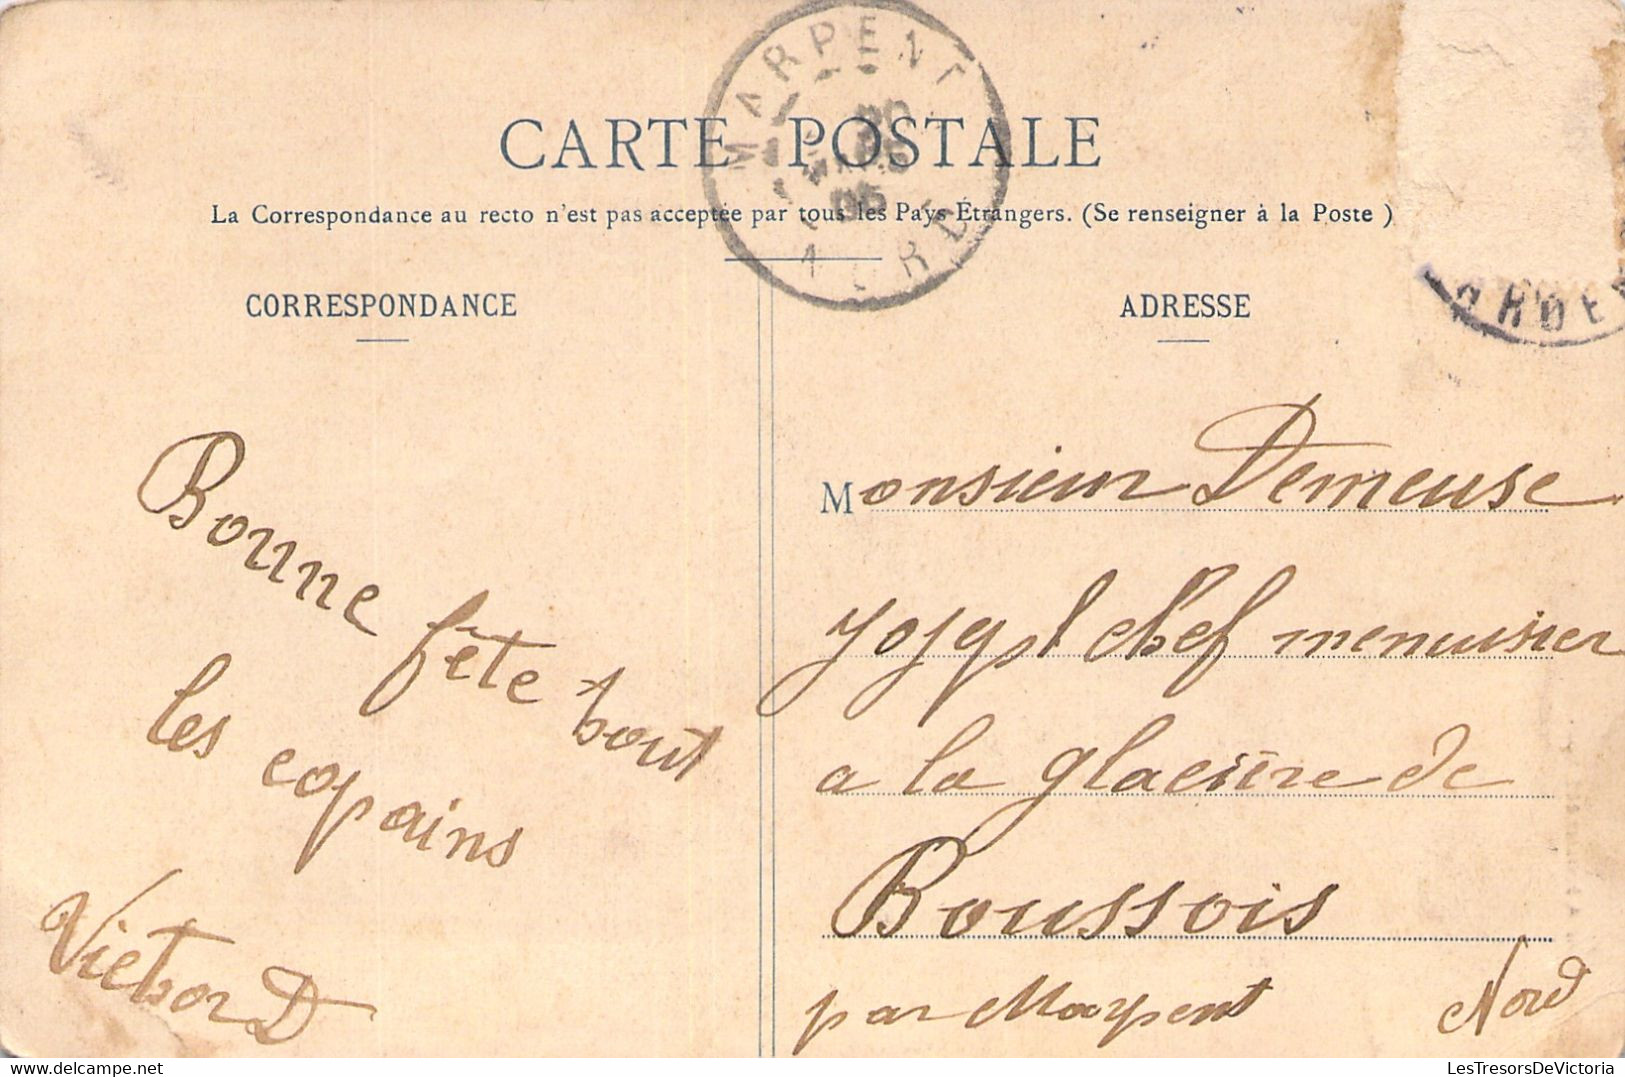 MARPENT
20
MARS
05
NORD
CARTE POSTALE
La Correspondance au recto n'est pas acceptée par tous les Pays Étrangers. (Se renseigner à la Poste )
CORRESPONDANCE
ADRESSE
ARDEN
Bonne fête tout
les copains
Victor D
Monsieur Demeuse
chef menuisier
a la glacière de
Boussois
par Marpent Nord
LesTresorsDeVictoria.com